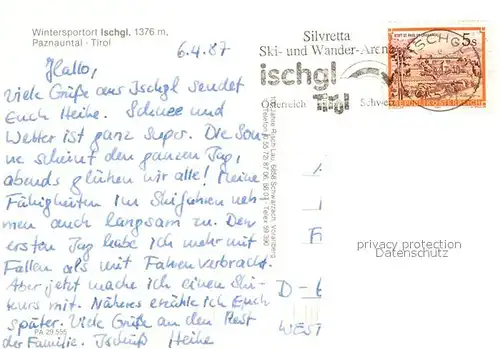 Wintersportort Ischgl, 1376 m,
Paznauntal - Tirol
6.4.87
Hallo,
Viele Grüße aus Ischgl sendet
Euch Heike. Schnee und
Wetter ist ganz super. Die Son-
ne scheint den ganzen Tag,
abends glühen wir alle! Meine
Fähigkeiten im Skifahren neh-
men auch langsam zu. Den
ersten Tag habe ich mehr mit
Fallen als mit Fahren verbracht.
Aber jetzt mache ich einen Ski-
kurs mit. Näheres erzähle ich Euch
später. Viele Grüße an den Rest
der Familie. Tschüß Heike
PA 29 555
Silvretta
Ski- und Wander-Arena
ischgl
Österreich Tirol Schweiz
ISCHGL
5s
REPUBLIK ÖSTERREICH
Risch-Lau, 6858 Schwarzach, Vorarlberg
privacy protection
Datenschutz
D-
WEST